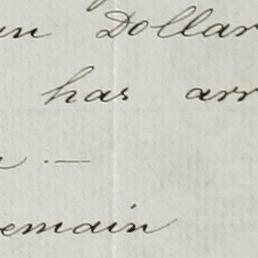 un Dollar
has arr
—
emain